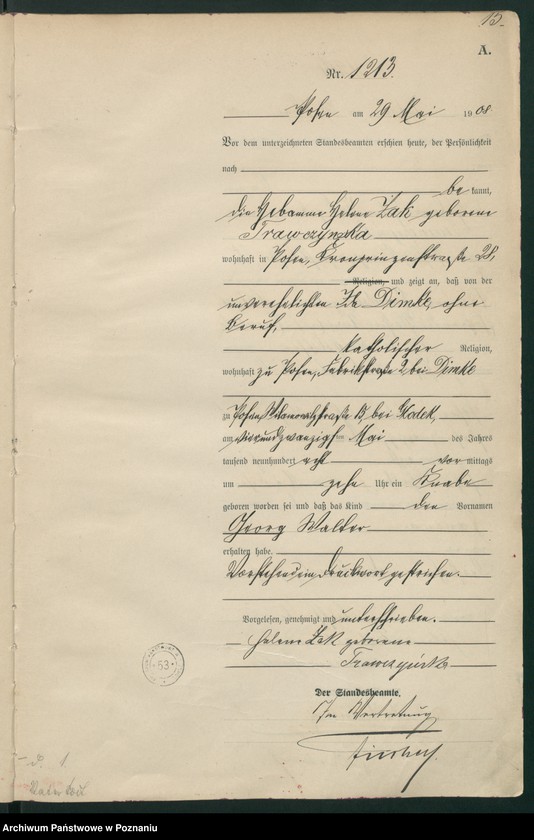 13.
A.
Nr. 1213.
Posen am 29 Mai 1908
Vor dem unterzeichneten Standesbeamten erschien heute, der Persönlichkeit
nach
be kannt,
die Hebamme Helene Zak geborene
Trawczynska
wohnhaft in Posen, Kronprinzenstraße
Religion, und zeigt an, daß von der
unverehelichten Dimke, ohne
Beruf,
katholischer Religion,
wohnhaft zu Posen, Fabrikstraße 2 bei Dimke
zu Posen 15, bei
am vierundzwanzigsten Mai des Jahres
tausend neunhundert acht vor mittags
um zehn Uhr ein Knabe
geboren worden sei und daß das Kind den Vornamen
Georg Walter
erhalten habe.
Vorstehend ein Druckwort gestrichen.
Vorgelesen, genehmigt und unterschrieben.
Helene Zak geborene
Trawczyńska
Der Standesbeamte.
In Vertretung
53
Archiwum Państwowe w Poznaniu